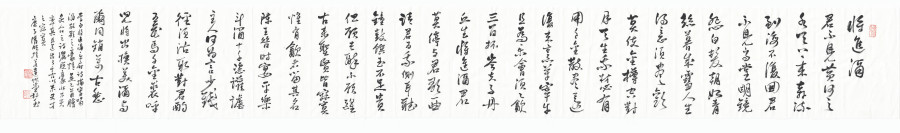 將進酒
君不見黃河之
水天上來奔流
到海不復回君
不見高堂明鏡
悲白髮朝如青
絲暮成雪人生
得意須盡歡
莫使金樽空對
月天生我材必有
用千金散盡還
復來烹羊宰牛
且為樂會須一飲
三百杯岑夫子丹
丘生將進酒君
莫停與君歌一曲
請君為我側耳聽
鐘鼓饌玉不足貴
但願長醉不願醒
古來聖賢皆寂寞
惟有飲者留其名
陳王昔時宴平樂
斗酒十千恣讙謔
主人何為言少錢
徑須沽取對君酌
五花馬千金裘呼
兒將出換美酒與
爾同銷萬古愁